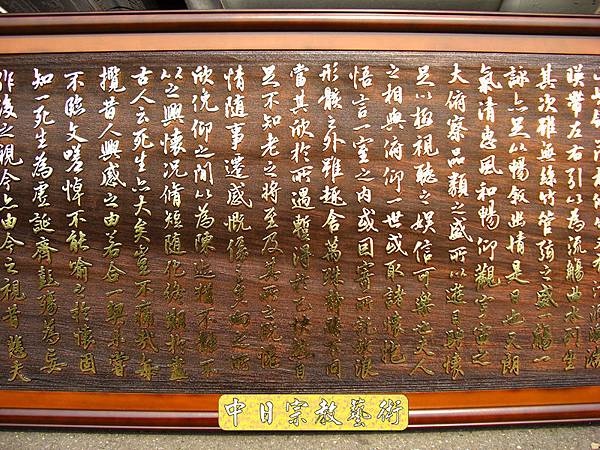 山峻領茂林修竹又有清流激湍
暎帶左右引以為流觴曲水列坐
其次雖無絲竹管弦之盛一觴一
詠亦足以暢敘幽情是日也天朗
氣清惠風和暢仰觀宇宙之
大俯察品類之盛所以遊目騁懷
足以極視聽之娛信可樂也夫人
之相與俯仰一世或取諸懷抱
悟言一室之內或因寄所託放浪
形骸之外雖趣舍萬殊靜躁不同
當其欣於所遇暫得於己快然自
足不知老之將至及其所之既惓
情隨事遷感慨係之矣向之所
欣俛仰之間以為陳迹猶不能不
以之興懷況脩短隨化終期於盡
古人云死生亦大矣豈不痛哉每
攬昔人興感之由若合一契未嘗
不臨文嗟悼不能喻之於懷固
知一死生為虛誕齊彭殤為妄
作後之視今亦由今之視昔悲夫
中日宗教藝術